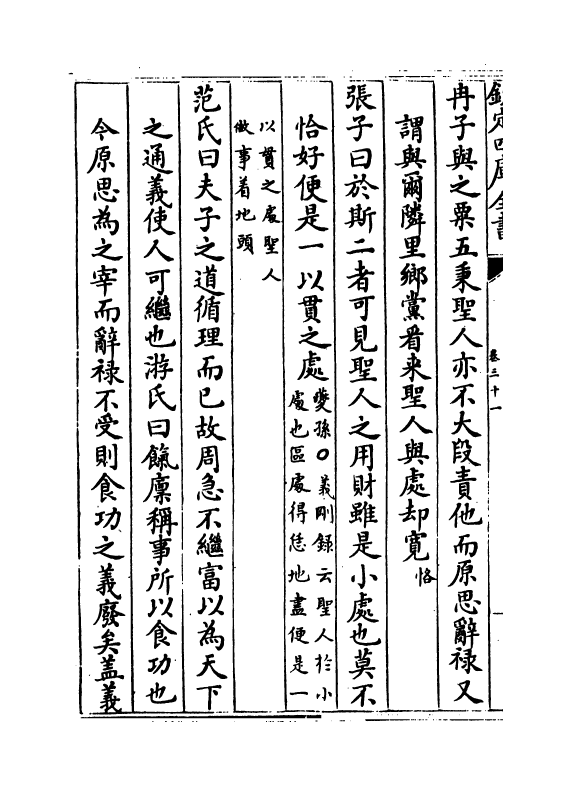 欽定四庫全書
卷三十一
冉子與之粟五秉聖人亦不大段責他而原思辭禄又
謂與爾隣里鄉黨看来聖人與處却寛恪
張子曰於斯二者可見聖人之用財雖是小處也莫不
恰好便是一以貫之處夔孫○義剛録云聖人於小
處也區處得恁地盡便是一
以貫之處聖人
做事着地頭
范氏曰夫子之道循理而已故周急不繼富以為天下
之通義使人可繼也游氏曰餼廩稱事所以食功也
今原思為之宰而辭禄不受則食功之義廢矣盖義